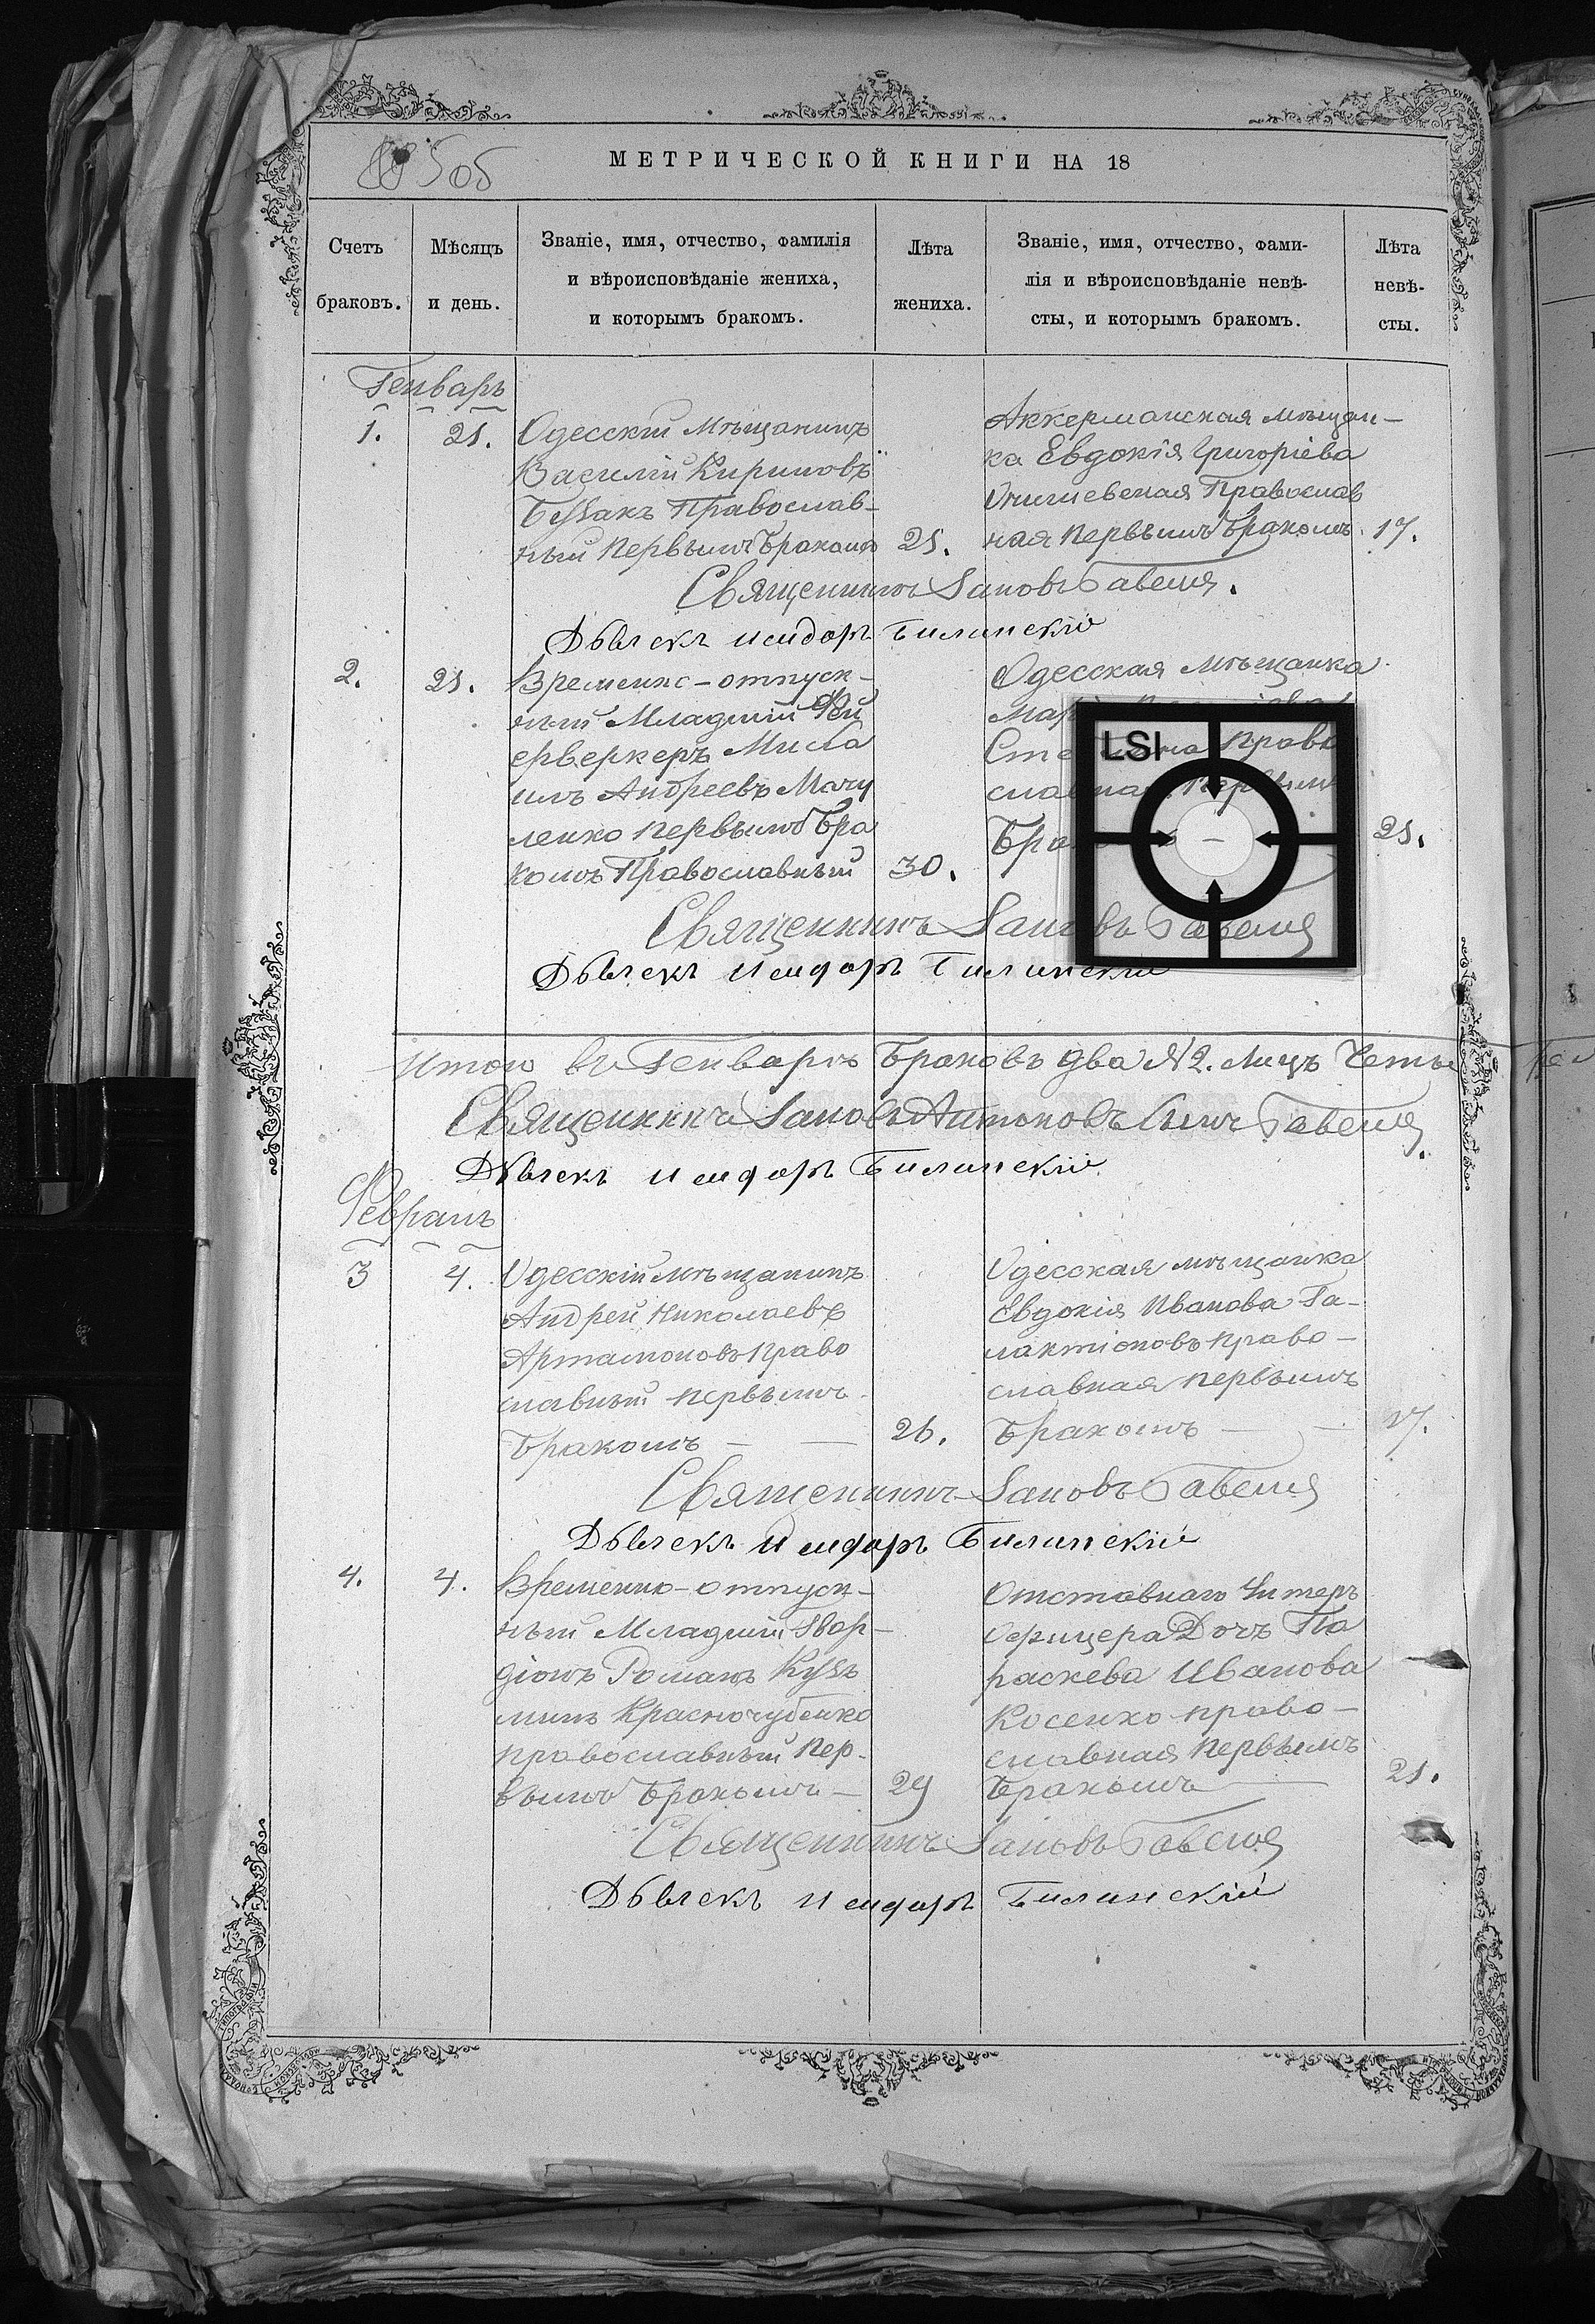 505
МЕТРИЧЕСКОЙ КНИГИ НА 18
Счетъ браковъ.
Мѣсяцъ и день.
Званіе, имя, отчество, фамилія и вѣроисповѣданіе жениха, и которымъ бракомъ.
Лѣта жениха.
Званіе, имя, отчество, фами-
лія и вѣроисповѣданіе невѣ-
сты, и которымъ бракомъ.
Лѣта невѣ-
сты.
Генварь
1.
21.
Одесскій Мѣщанинъ
Василій Кириловъ
Бессакъ Православ-
ный Первымъ Бракомъ
25.
Аккерманская мѣщан-
ка Евдокія Григоріева
Православ
ная Первымъ Бракомъ
17.
Священникъ Іаковъ Гавеля.
Дьячекъ Исидоръ Билинскій
2.
21.
Временно-отпуск-
ный Младшій Фей
ерверкеръ Миха
илъ Андреевъ Мачу
ленко Первымъ Бра
комъ Православный
30.
Одесская Мѣщанка
Мар
Сте Право
славная Первымъ
Бра
21.
Священникъ Іаковъ Гавеля
Дьячекъ Исидоръ Билинскій
LSI
Итого въ Генварѣ Браковъ два №2. Лицъ Четы
Священникъ Іаковъ Антоновъ Сынъ Гавеля.
Дьячекъ Исидоръ Билинскій
Февраль
3
4.
Одесскій мѣщанинъ
Андрей Николаевъ
Артамоновъ Право
славный первымъ
Бракомъ — —
26.
Одесская мѣщанка
Евдокія Иванова Га-
лактіоновъ Право-
славная первымъ
Бракомъ — —
17.
Священникъ Іаковъ Гавеля
Дьячекъ Исидоръ Билинскій
4.
4.
Временно-отпуск-
ный Младшій Гвар-
діонъ Романъ Кузь
минъ Красночубенко
православный Пер-
вымъ Бракомъ —
29
Отставнаго Унтеръ
Офицера Дочь Па
раскева Иванова
Косенко право-
славная Первымъ
Бракомъ —
21.
Священникъ Іаковъ Гавеля
Дьячекъ Исидоръ Билинскій